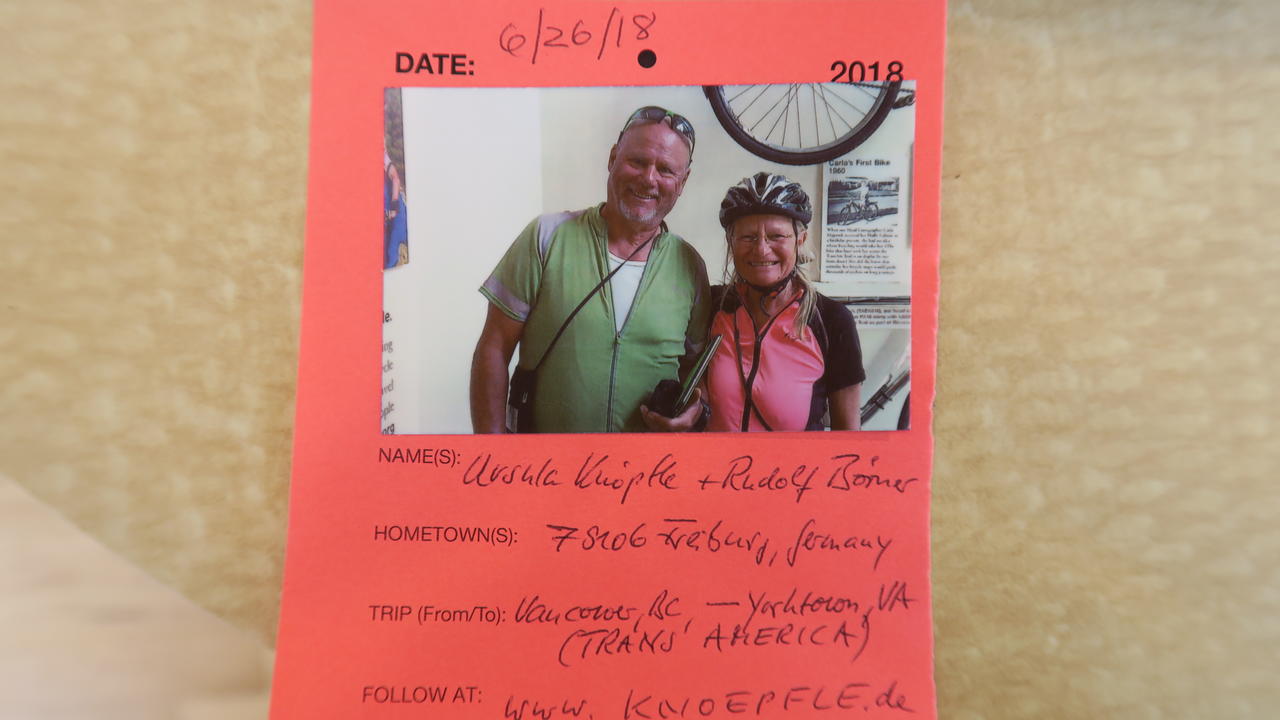 6/26/18
DATE: 2018
Carla's First Bike
1960
le.
ing
cle
vel
ople
org
NAME(S): Ursula Knöpfle + Rudolf Börner
HOMETOWN(S): Freiburg, Germany
TRIP (From/To): Vancouver, BC, — Yorktown, VA
(TRANS AMERICA)
FOLLOW AT: www. KNOEPFLE.de